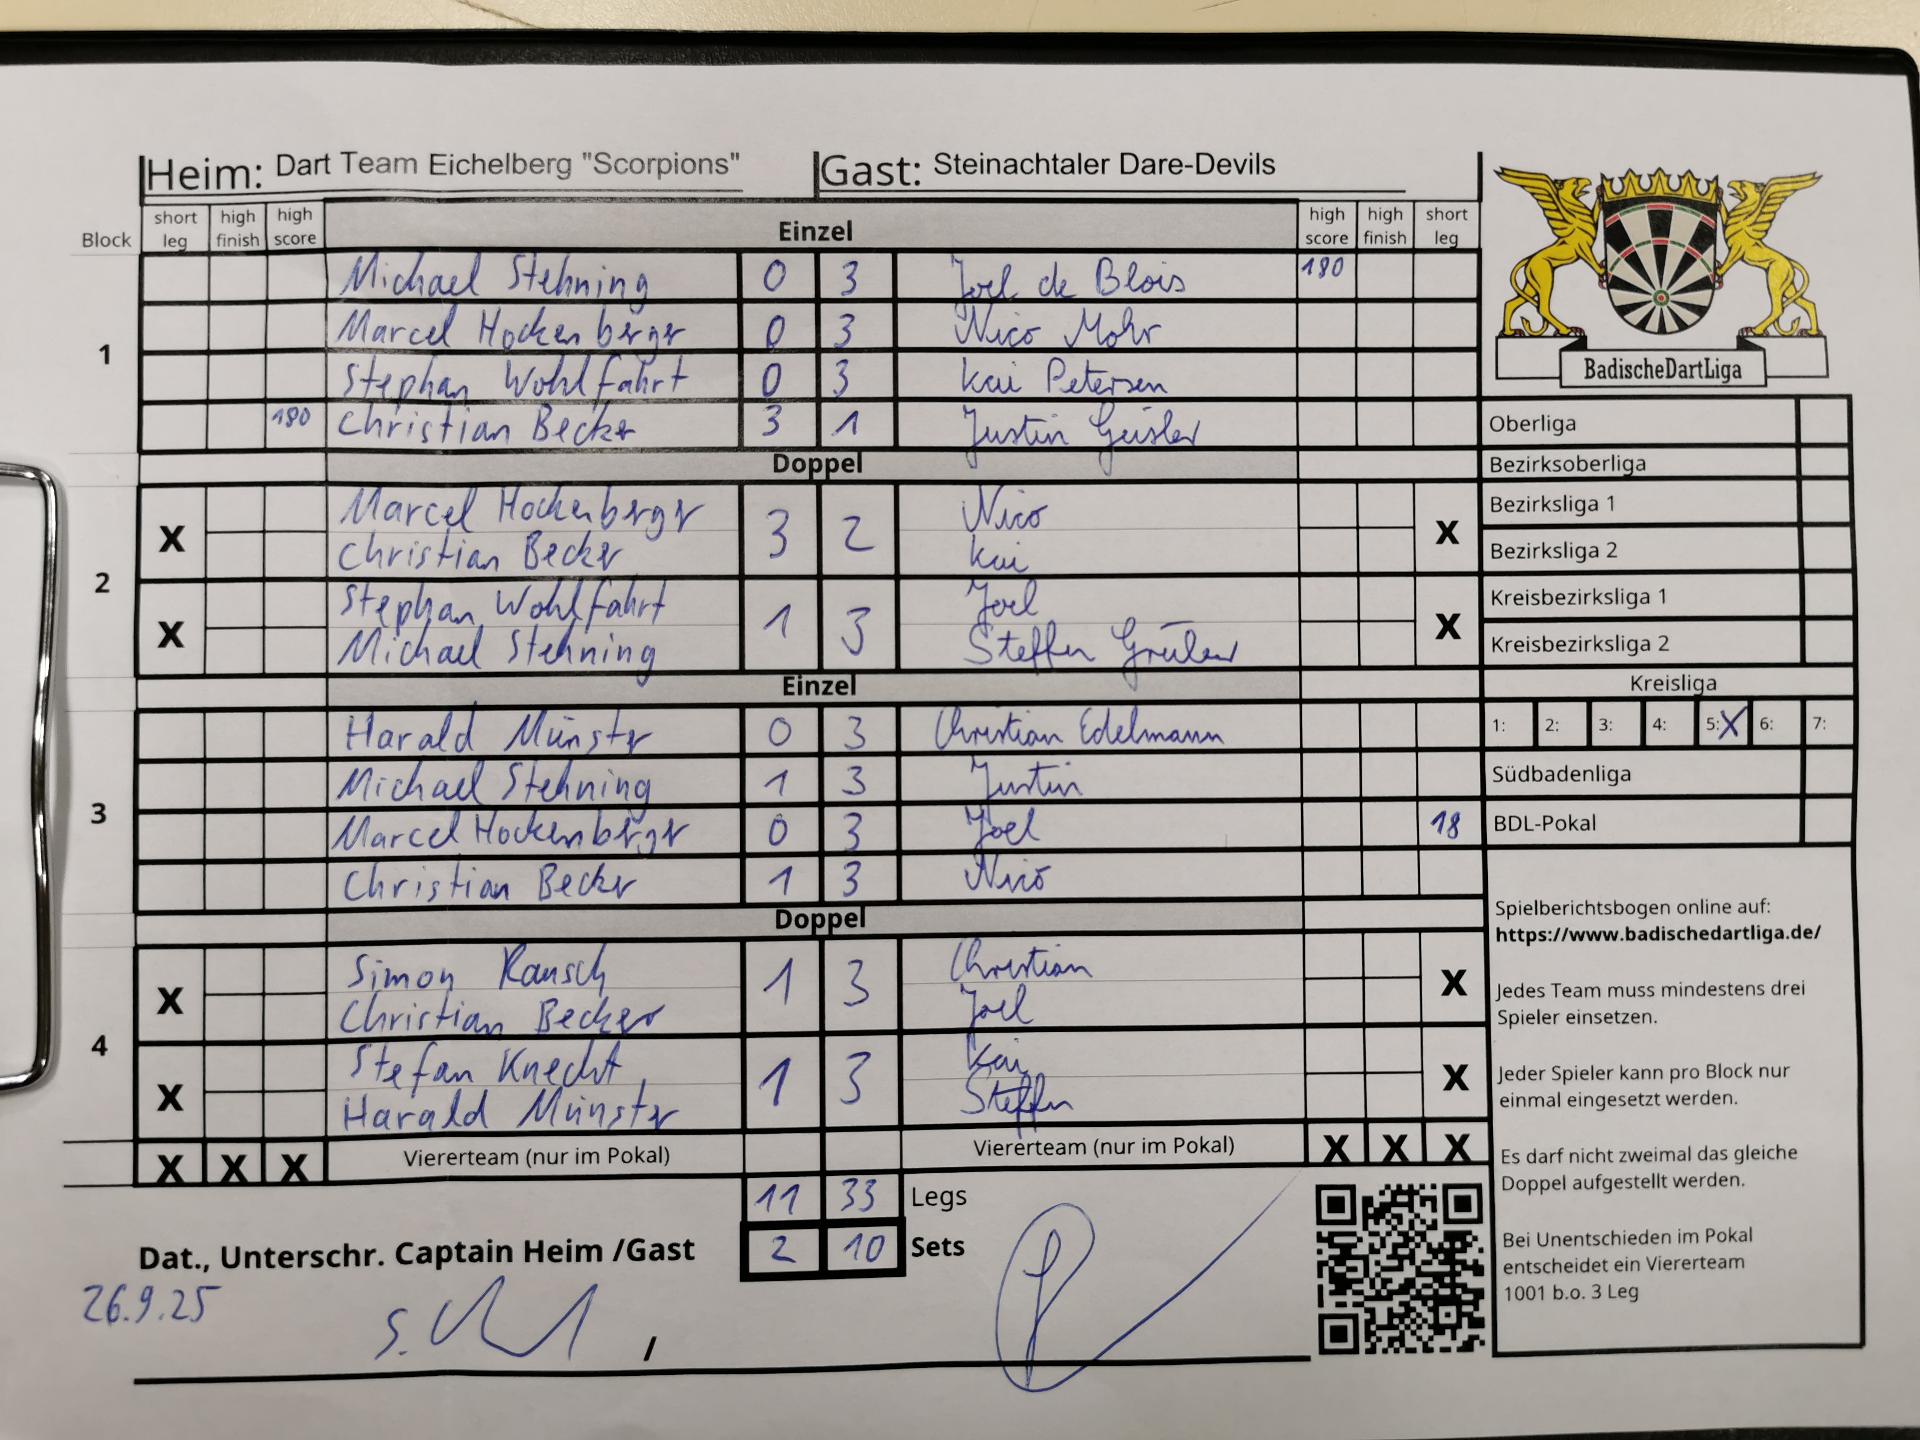 Heim: Dart Team Eichelberg "Scorpions" Gast: Steinachtaler Dare-Devils
Block short leg high finish high score Einzel high score high finish short leg
1
Michael Stehning 0 3 Joel de Blois 180
Marcel Hockenberger 0 3 Nico Mohr
Stephan Wohlfahrt 0 3 Kai Petersen
180 Christian Becker 3 1 Justin Geisler
Doppel
2
X Marcel Hockenberger 3 2 Nico X
Christian Becker Kai
X Stephan Wohlfahrt 1 3 Joel X
Michael Stehning Steffen
Einzel
3
Harald Münster 0 3 Christian Edelmann
Michael Stehning 1 3 Justin
Marcel Hockenberger 0 3 Joel 18
Christian Becker 1 3 Nico
Doppel
4
X Simon Rausch 1 3 Christian X
Christian Becker Joel
X Stefan Knecht 1 3 Kai X
Harald Münster Steffen
X X X Viererteam (nur im Pokal) Viererteam (nur im Pokal) X X X
11 33 Legs
2 10 Sets
Dat., Unterschr. Captain Heim /Gast
26.9.25
/
BadischeDartLiga
Oberliga
Bezirksoberliga
Bezirksliga 1
Bezirksliga 2
Kreisbezirksliga 1
Kreisbezirksliga 2
Kreisliga
1: 2: 3: 4: 5: X 6: 7:
Südbadenliga
BDL-Pokal
Spielberichtsbogen online auf:
https://www.badischedartliga.de/
Jedes Team muss mindestens drei
Spieler einsetzen.
Jeder Spieler kann pro Block nur
einmal eingesetzt werden.
Es darf nicht zweimal das gleiche
Doppel aufgestellt werden.
Bei Unentschieden im Pokal
entscheidet ein Viererteam
1001 b.o. 3 Leg